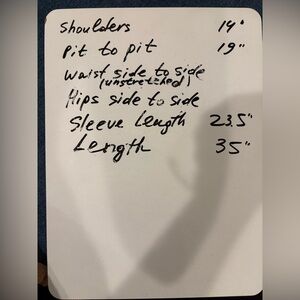 Shoulders 14"
Pit to pit 19"
Waist side to side
(unstretched)
Hips side to side
Sleeve Length 23.5"
Length 35"